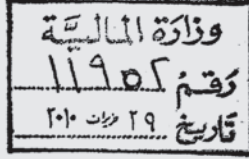 وزارة المالية
رقم ١١٩٥٢
تاريخ ٢٩ حزيران ٢٠١٠